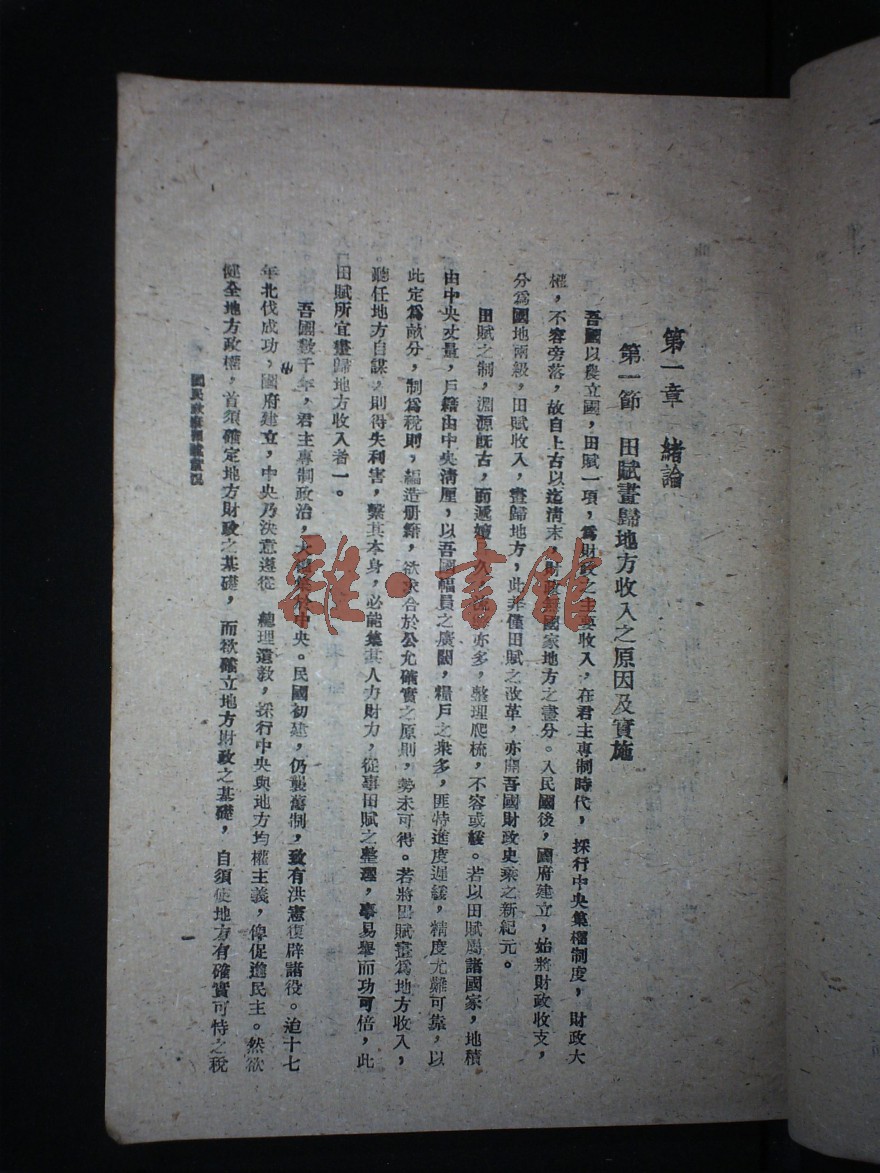 第一章　緒論
第一節　田賦畫歸地方收入之原因及實施
吾國以農立國，田賦一項，爲財政之主要收入，在君主專制時代，採行中央集權制度，財政大
權，不容旁落，故自上古以迄淸末，財政無國家地方之畫分。入民國後，國府建立，始將財政收支，
分爲國地兩級，田賦收入，畫歸地方，此非僅田賦之改革，亦開吾國財政史乘之新紀元。
田賦之制，淵源旣古，而遞嬗久，亦多，整理爬梳，不容或緩。若以田賦屬諸國家，地積
由中央丈量，戶籍由中央淸厘，以吾國幅員之廣闊，糧戶之衆多，匪特進度遲緩，精度尤難可靠，以
此定爲畝分，制爲稅則，編造册籍，欲求合於公允確實之原則，勢未可得。若將田賦畫爲地方收入，
聽任地方自謀，則得失利害，繫其本身，必能集其人力財力，從事田賦之整理，事易舉而功可倍，此
田賦所宜畫歸地方收入者一。
吾國數千年，君主專制政治，大權集於中央。民國初建，仍襲舊制，致有洪憲復辟諸役。迨十七
年北伐成功，國府建立，中央乃決意遵從　總理遺敎，採行中央與地方均權主義，俾促進民主。然欲
健全地方政權，首須確定地方財政之基礎，而欲確立地方財政之基礎，自須使地方有確實可恃之稅
國民政府
一
雜·書館